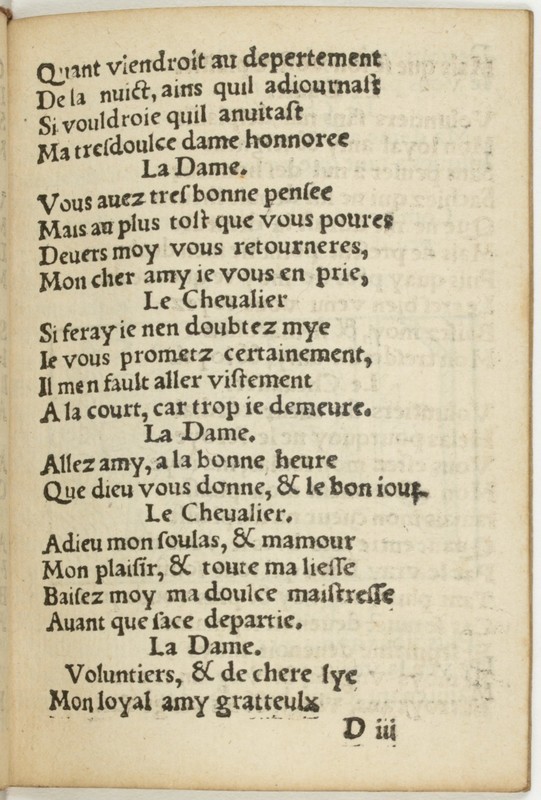 Quant viendroit au depertement
De la nuict, ains quil adiournast
Si vouldroie quil anuitast
Ma tresdoulce dame honnoree
La Dame.
Vous auez tres bonne pensee
Mais au plus tost que vous poures
Deuers moy vous retourneres,
Mon cher amy ie vous en prie,
Le Cheualier
Si feray ie nen doubtez mye
Ie vous prometz certainement,
Il men fault aller vistement
A la court, car trop ie demeure.
La Dame.
Allez amy, a la bonne heure
Que dieu vous donne, & le bon iour
Le Cheualier.
Adieu mon soulas, & mamour
Mon plaisir, & toute ma liesse
Baisez moy ma doulce maistresse
Auant que face departie.
La Dame.
Voluntiers, & de chere lye
Mon loyal amy gratteulx
D iii